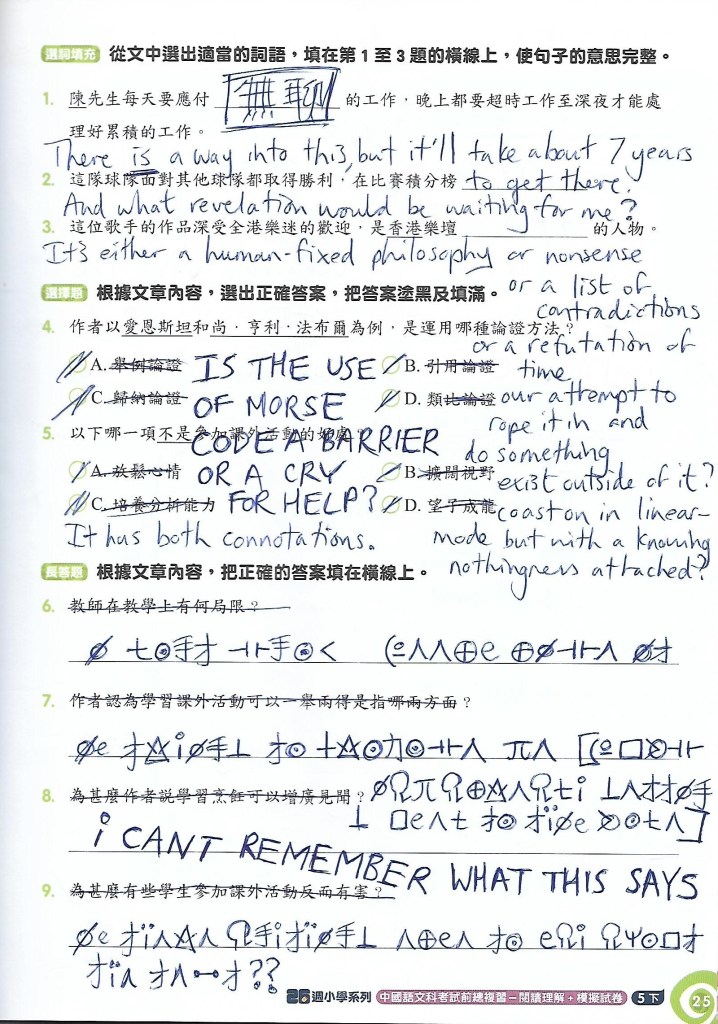 選詞填充 從文中選出適當的詞語，填在第 1 至 3 題的橫線上，使句子的意思完整。
1. 陳先生每天要應付 的工作，晚上都要超時工作至深夜才能處
理好累積的工作。
There is a way into this, but it'll take about 7 years
2. 這隊球隊面對其他球隊都取得勝利，在比賽積分榜 to get there.
And what revelation would be waiting for me?
3. 這位歌手的作品深受全港樂迷的歡迎，是香港樂壇 的人物。
It's either a human-fixed philosophy or nonsense
選擇題 根據文章內容，選出正確答案，把答案塗黑及填滿。
or a list of
contradictions
4. 作者以愛恩斯坦和尚．亨利．法布爾為例，是運用哪種論證方法？
or a refutation of
time
A. 舉例論證 B. 引用論證
C. 歸納論證 D. 類比論證
IS THE USE
OF MORSE
CODE A BARRIER
OR A CRY
FOR HELP?
our attempt to
rope it in and
do something
exist outside of it?
coast on in linear-
mode but with a knowing
nothingness attached?
5. 以下哪一項不是參加課外活動的好處？
A. 放鬆心情 B. 擴闊視野
C. 培養分析能力 D. 望子成龍
It has both connotations.
長答題 根據文章內容，把正確的答案填在橫線上。
6. 教師在教學上有何局限？
7. 作者認為學習課外活動可以一舉兩得是指哪兩方面？
8. 為甚麼作者說學習烹飪可以增廣見聞？
i CANT REMEMBER WHAT THIS SAYS
9. 為甚麼有些學生參加課外活動反而有害？
26週小學系列 中國語文科考試前總複習－閱讀理解＋模擬試卷 5下 25